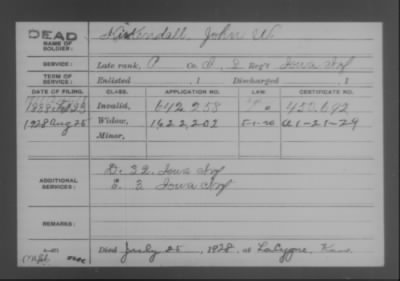 DEAD
NAME OF SOLDIER: Kirkendall, John W
SERVICE: Late rank, P Co. D, 2 Reg't Iowa Inf
TERM OF SERVICE: Enlisted , 1 Discharged , 1
DATE OF FILING. CLASS. APPLICATION NO. LAW. CERTIFICATE NO.
Invalid, 642 258
1928 Aug 25 Widow, 1622202 5-1-20 A1-21-29
Minor,
ADDITIONAL SERVICES: D. 22 Iowa Inf
2 Iowa Inf
REMARKS:
Died July 25, 1928, at LaCygne, Kan.